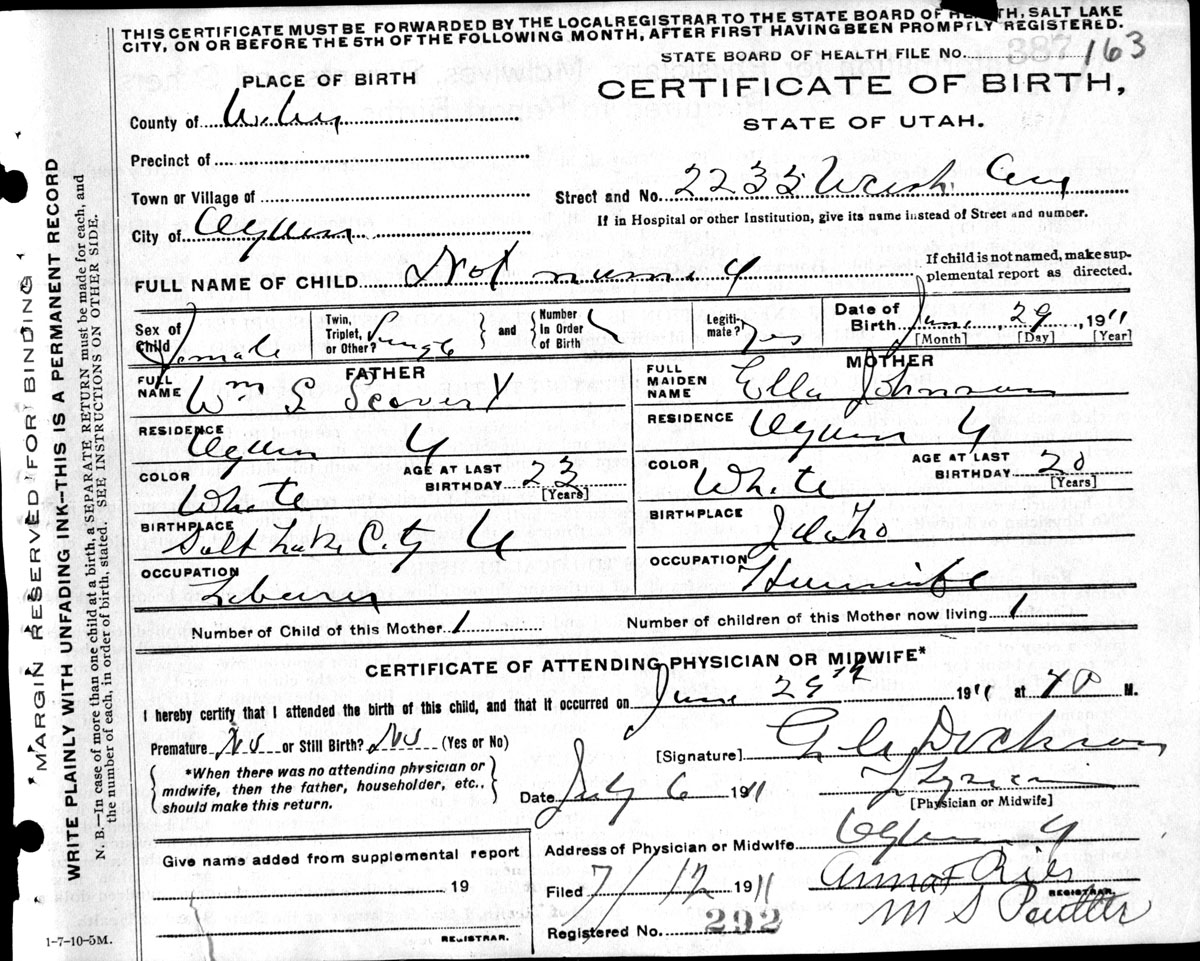 THIS CERTIFICATE MUST BE FORWARDED BY THE LOCAL REGISTRAR TO THE STATE BOARD OF HEALTH, SALT LAKE
CITY, ON OR BEFORE THE 5TH OF THE FOLLOWING MONTH, AFTER FIRST HAVING BEEN PROMPTLY REGISTERED.
STATE BOARD OF HEALTH FILE No. 163
PLACE OF BIRTH
CERTIFICATE OF BIRTH,
STATE OF UTAH.
County of Weber
Precinct of
Town or Village of
Street and No. 2235 Wash. Ave
If in Hospital or other Institution, give its name instead of Street and number.
City of Ogden
FULL NAME OF CHILD Not named
If child is not named, make sup-
plemental report as directed.
Sex of Child Female
Twin, Triplet, or Other? Single
and Number In Order of Birth
Legiti-mate? Yes
Date of Birth June 29, 1911
[Month] [Day] [Year]
FATHER
MOTHER
FULL NAME Wm S
FULL MAIDEN NAME Ella Johnson
RESIDENCE Ogden U
RESIDENCE Ogden U
COLOR White
AGE AT LAST BIRTHDAY 23 [Years]
COLOR White
AGE AT LAST BIRTHDAY 20 [Years]
BIRTHPLACE Salt Lake City U
BIRTHPLACE Idaho
OCCUPATION Laborer
OCCUPATION Housewife
Number of Child of this Mother 1
Number of children of this Mother now living 1
CERTIFICATE OF ATTENDING PHYSICIAN OR MIDWIFE*
I hereby certify that I attended the birth of this child, and that it occurred on June 29th 1911 at M.
Premature No or Still Birth? No (Yes or No)
[Signature] Dickson
*When there was no attending physician or
midwife, then the father, householder, etc.,
should make this return.
Date July 6 1911
[Physician or Midwife]
Give name added from supplemental report
19
REGISTRAR.
Address of Physician or Midwife Ogden U
Filed 7/12 1911
Anna
REGISTRAR.
Registered No. 292
M S
1-7-10-5M.
MARGIN RESERVED FOR BINDING
WRITE PLAINLY WITH UNFADING INK—THIS IS A PERMANENT RECORD
N. B.—In case of more than one child at a birth, a SEPARATE RETURN must be made for each, and
the number of each, in order of birth, stated. SEE INSTRUCTIONS ON OTHER SIDE.